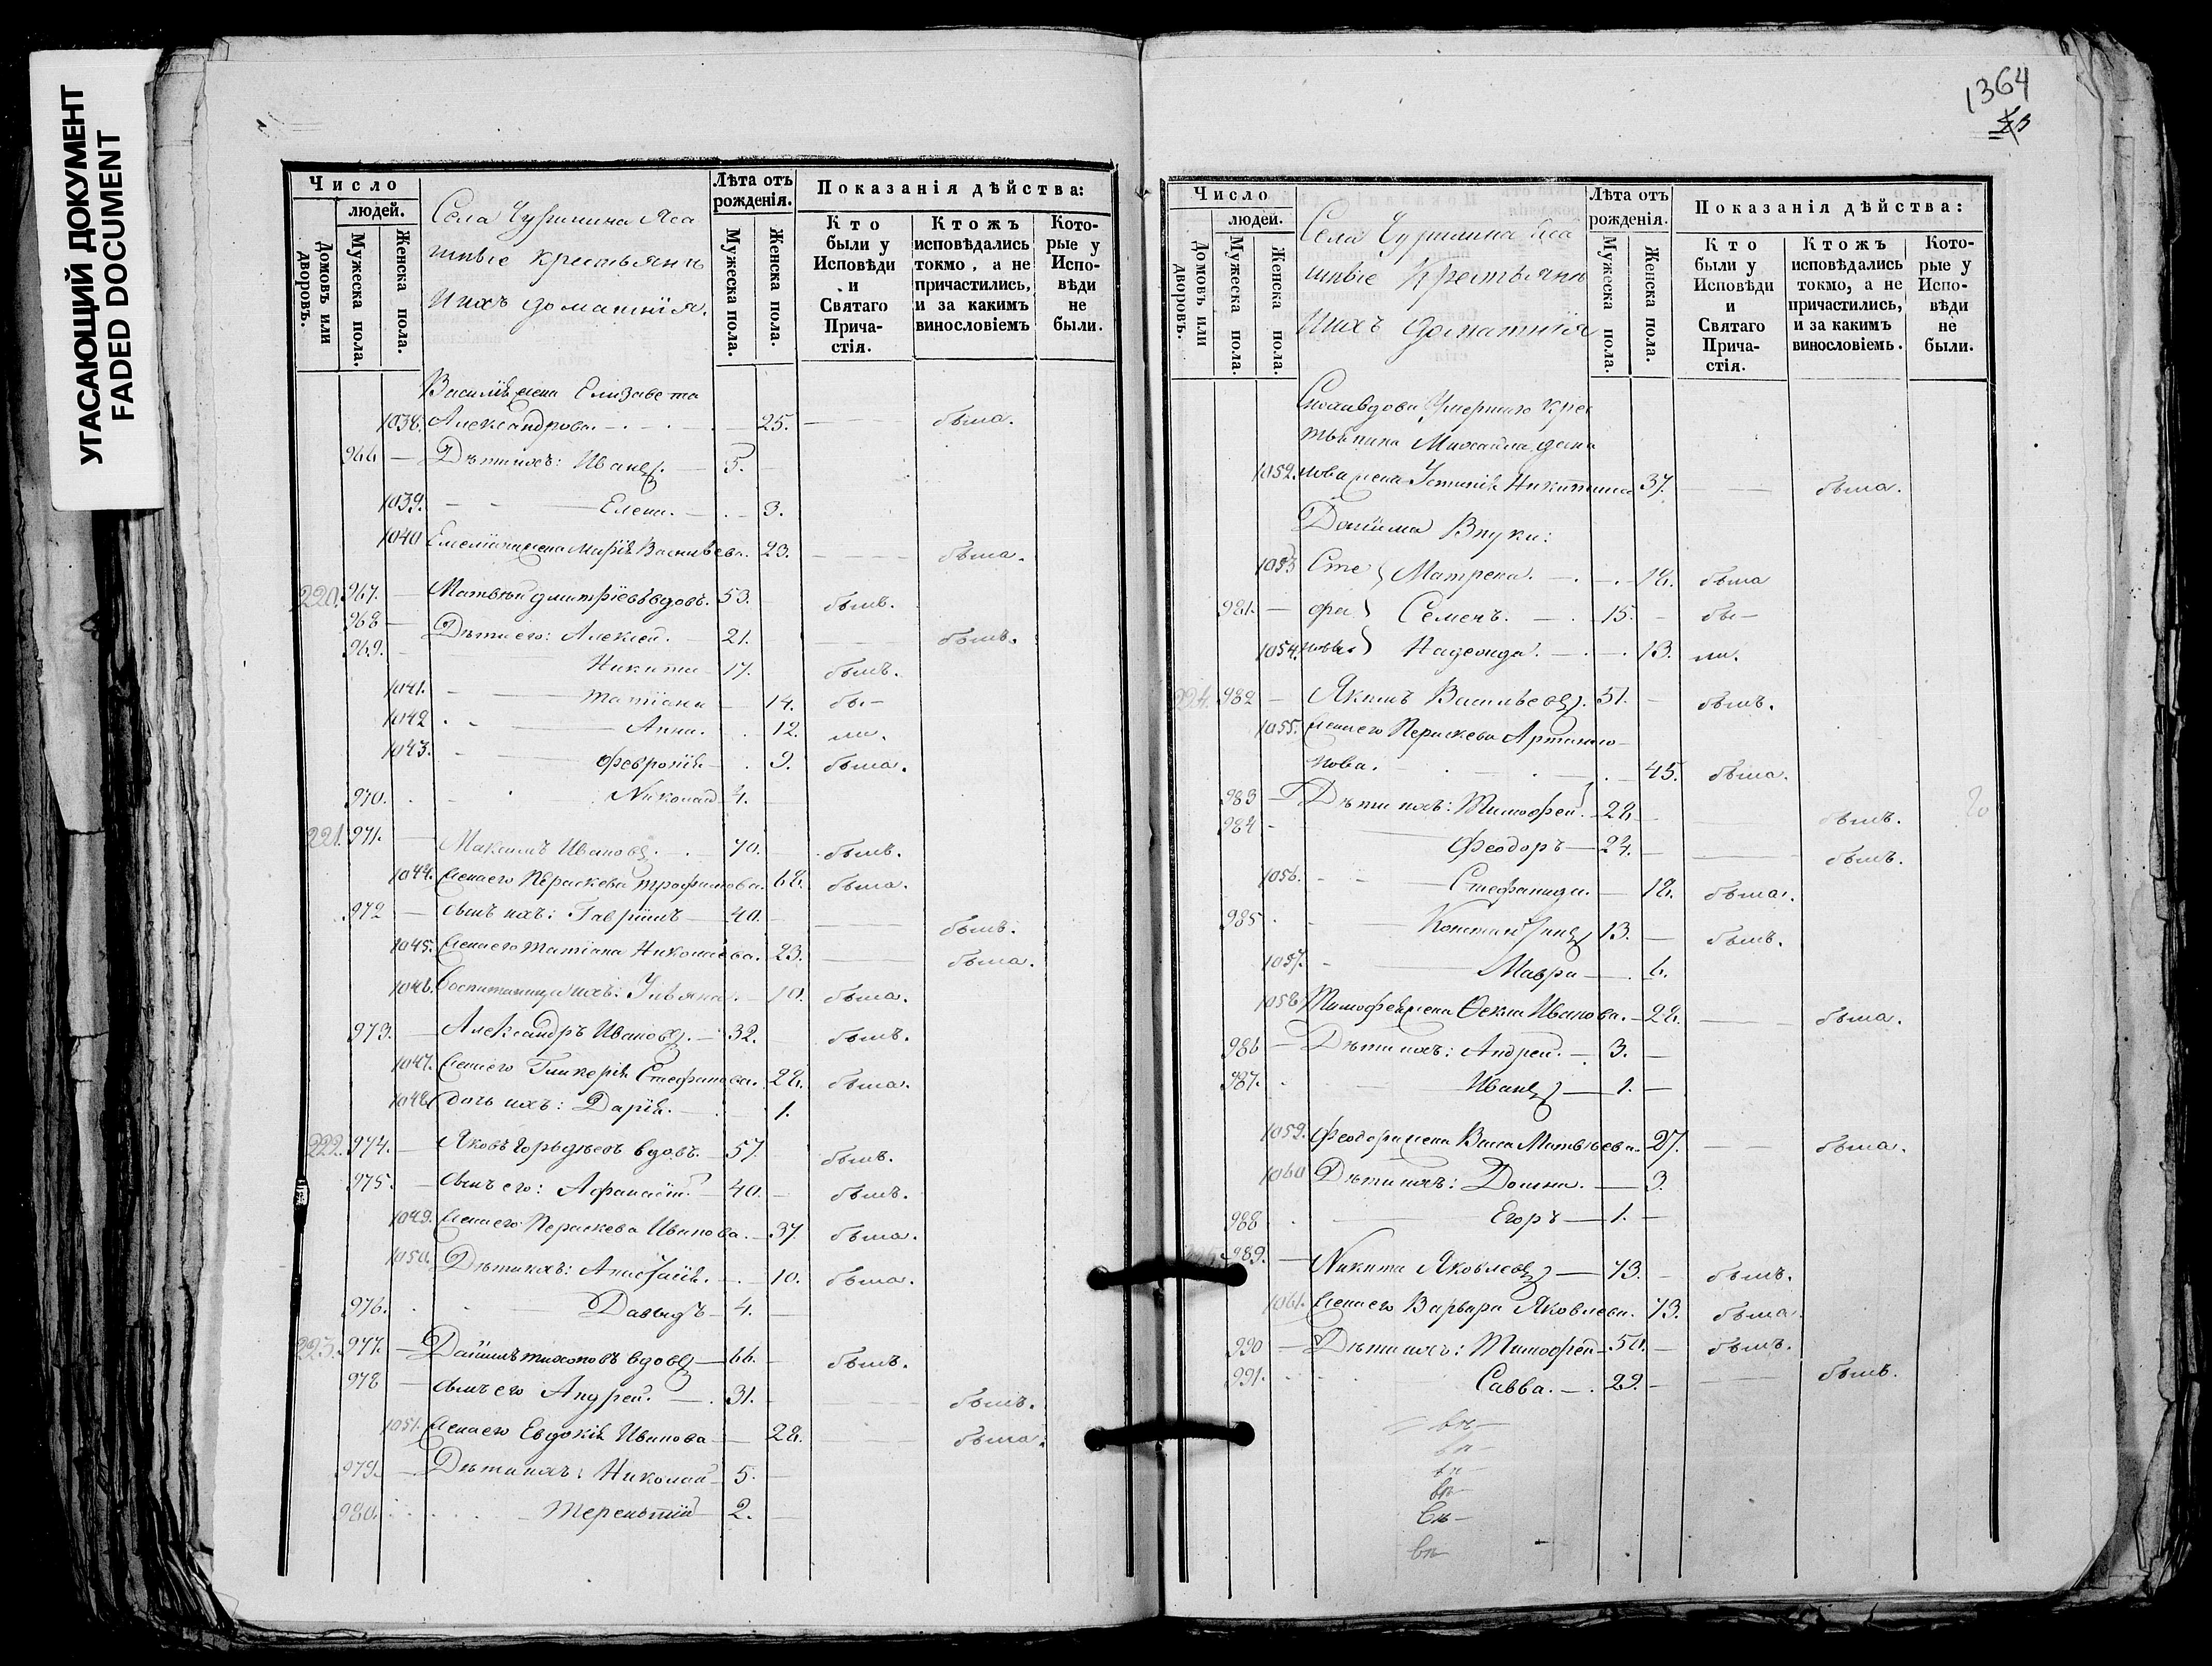 УГАСАЮЩИЙ ДОКУМЕНТ
FADED DOCUMENT
Число
людей.
Домовъ или дворовъ.
Мужеска пола.
Женска пола.
Села Чурилина Яса
шные крестьяне
И ихъ домашнiя.
Лѣта отъ рожденiя.
Мужеска пола.
Женска пола.
Показанiя дѣйства:
Кто были у Исповѣди и Святаго Причастiя.
Ктожъ исповѣдались токмо, а не причастились, и за какимъ винословiемъ
Которые у Исповѣди не были.
Василiя жена Елизавета
1038. Александрова. 25. была.
966 Дѣти ихъ: Иванъ. 5.
1039. Елена. 3.
1040 жена Марiя Васильева. 23. была.
220. 967. Матвѣй Дмитрiевъ вдовъ. 53. былъ.
968 Дѣти его: Алексей. 21. былъ.
969. Никита 17. былъ.
1041. Татiана 14. бы-
1042 Анна. 12. ли.
1043. Феронiя 9. была.
970. Николай 4.
221. 971. Максимъ Ивановъ. 70. былъ.
1044. Жена его Параскева Трофимова. 68. была.
972 Сынъ ихъ: Гаврiилъ 40. былъ.
1045. Жена его Татiана Николаева. 23. была.
1046. Воспитанница ихъ: Улiяна. 10. была.
973. Александръ Ивановъ. 32. былъ.
1047. Жена его Гликерiя Стефанова. 28. была.
1048. Дочь ихъ: Дарiя. 1.
222. 974. Яковъ вдовъ. 57. былъ.
975. Сынъ его: Афанасiй. 40. былъ.
1049. Жена его Параскева Иванова. 37. была.
1050. Дѣти ихъ: Анастасiя. 10. была.
976. Давыдъ 4.
223. 977. Данiилъ Тихоновъ вдовъ 66. былъ.
978 Сынъ его Андрей. 31. былъ.
1051. Жена его Евдокiя Иванова 28. была.
979. Дѣти ихъ: Николай 5.
980. Терентiй 2.
1364
Число
людей.
Домовъ или дворовъ.
Мужеска пола.
Женска пола.
Села Чурилина Яса
шные Крестьяне
И ихъ домашнiя
Лѣта отъ рожденiя.
Мужеска пола.
Женска пола.
Показанiя дѣйства:
Кто были у Исповѣди и Святаго Причастiя.
Ктожъ исповѣдались токмо, а не причастились, и за какимъ винословiемъ.
Которые у Исповѣди не были.
Сноха вдова Умершаго Крес
тьянина Михаила Дани
1052. лова жена Устинiя Никитина 37. была.
Данiила Внуки:
1053 Сте Матрена. 18. была
981. фа Семенъ. 15. бы-
1054. новы Надежда. 13. ли.
224. 982 Якимъ Васильевъ. 51. былъ.
1055. Жена его Параскева Артамо-
нова. 45. была.
983 Дѣти ихъ: Тимофей. 28. былъ.
984 Феодоръ 24. былъ.
1056. Стефанида. 18. была.
985 Константинъ 13. былъ.
1057. Мавра 6.
1058. Тимофея жена Фекла Иванова. 28. была.
986 Дѣти ихъ: Андрей. 3.
987. Иванъ 1.
1059. Феодора жена Васса Матвѣева. 27. была.
1060 Дѣти ихъ: Домна. 3.
988 Егоръ 1.
989. Никита Яковлевъ 73. былъ.
1061. Жена его Варвара Яковлева. 73. была.
990 Дѣти ихъ: Тимофей 50. былъ.
991. Савва. 29. былъ.